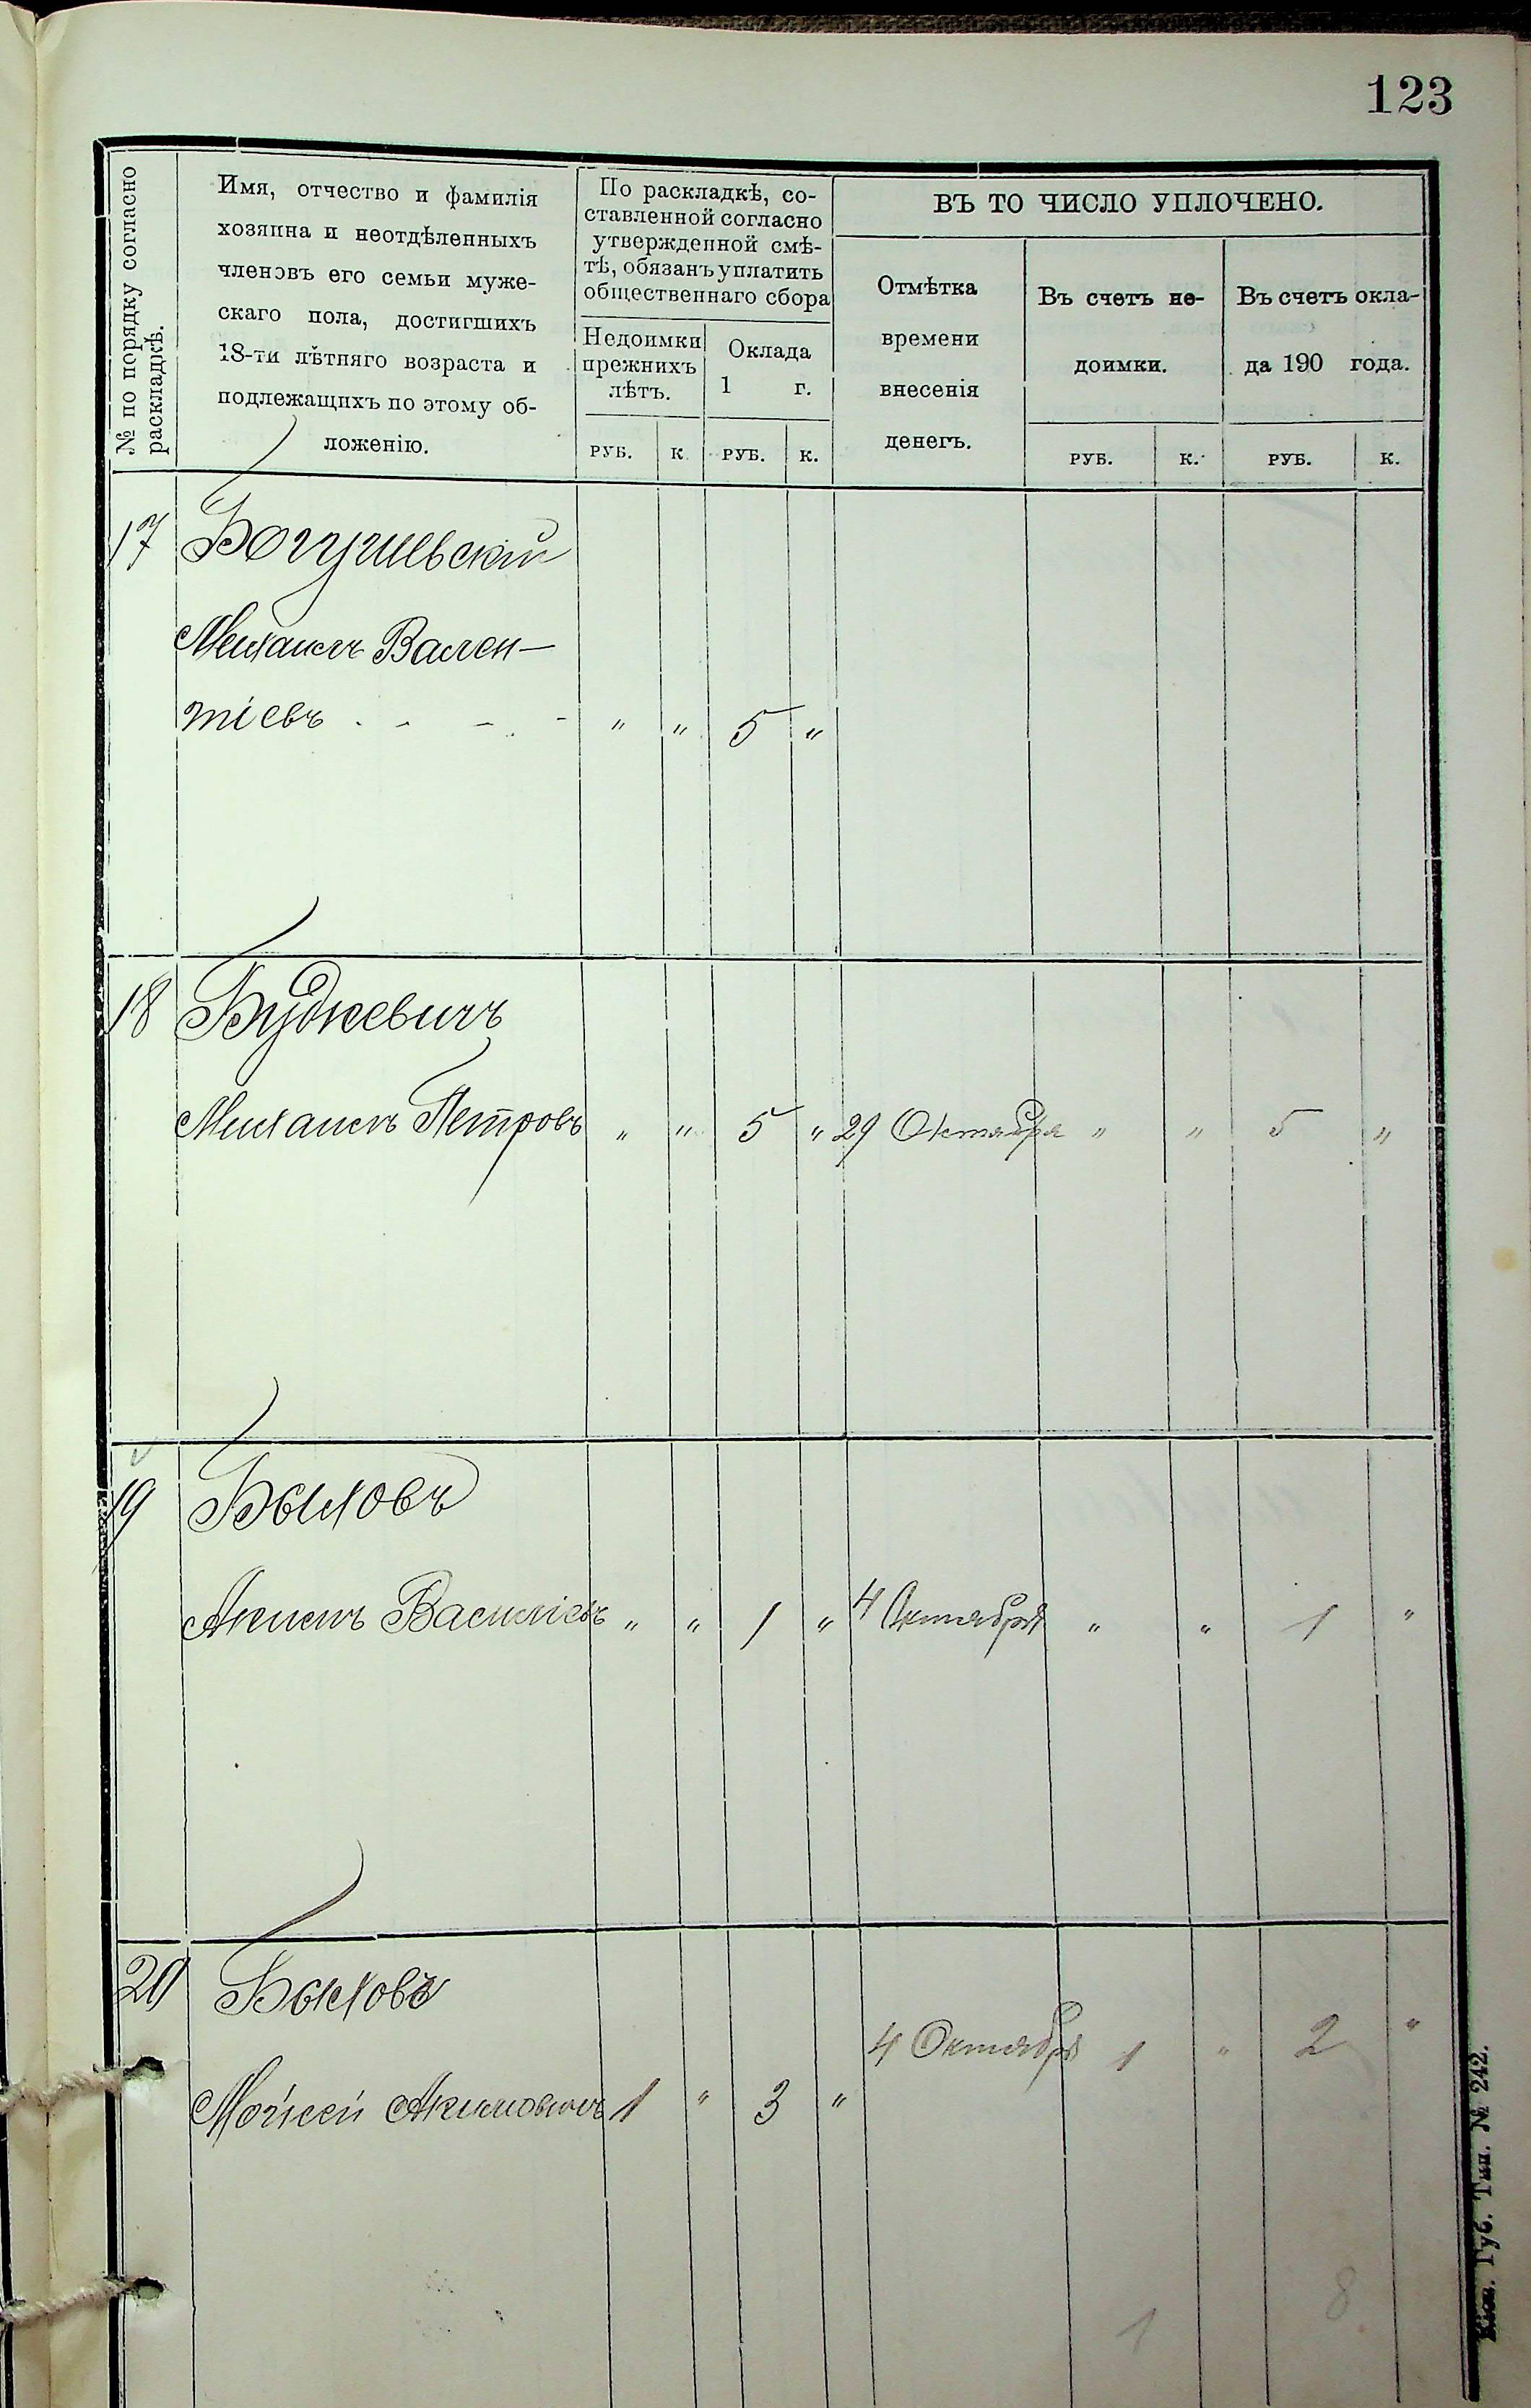 123
№ по порядку согласно
раскладкѣ.
Имя, отчество и фамилія
хозяина и неотдѣленныхъ
членовъ его семьи муже-
скаго пола, достигшихъ
18-ти лѣтняго возраста и
подлежащихъ по этому об-
ложенію.
По раскладкѣ, со-
ставленной согласно
утвержденной смѣ-
тѣ, обязанъ уплатить
общественнаго сбора
Недоимки
прежнихъ
лѣтъ.
Оклада
1 г.
ВЪ ТО ЧИСЛО УПЛОЧЕНО.
Отмѣтка
времени
внесенія
денегъ.
Въ счетъ не-
доимки.
Въ счетъ окла-
да 190 года.
РУБ. К РУБ. К. РУБ. К. РУБ. К.
17 Богушевскій
Михаилъ Вален-
тіевъ . - - - " " 5 "
18 Будкевичъ
Михаилъ Петровъ " " 5 " 29 Октября " " 5 "
19 Быховъ
Акимъ Василіевъ " " 1 " 4 Октября " " 1 "
20 Быховъ
4 Октября 1 " 2 "
Мойсей Акимовичъ 1 " 3 "
1 8
Кіев. Губ. Тип. № 242.